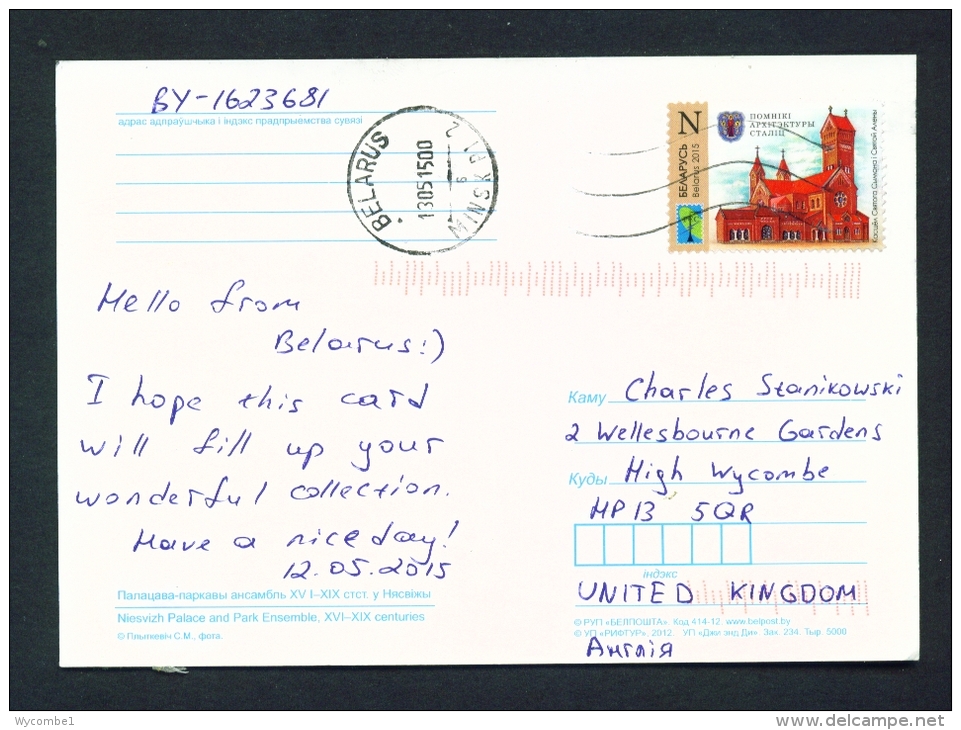 BY-1623681
адрас адпраўшчыка і індэкс прадпрыемства сувязі
BELARUS
13051500
6
MINSK PI 2
N
ПОМНІКІ
АРХІТЭКТУРЫ
СТАЛІЦ
БЕЛАРУСЬ
Belarus 2015
Касцёл Святога Сымона і Святой Алены
Hello from
Belarus:)
I hope this card
will fill up your
wonderful collection.
Have a nice day!
12.05.2015
Палацава-паркавы ансамбль XVI–XIX стст. у Нясвіжы
Niesvizh Palace and Park Ensemble, XVI–XIX centuries
© Плыткевіч С.М., фота.
Каму Charles Stanikowski
2 Wellesbourne Gardens
Куды High Wycombe
HP13 5QR
індэкс
UNITED KINGDOM
© РУП «БЕЛПОШТА». Код 414-12. www.belpost.by
© УП «РИФТУР», 2012. УП «Джи энд Ди». Зак. 234. Тыр. 5000
Англія
Wycombe1
www.delcampe.net